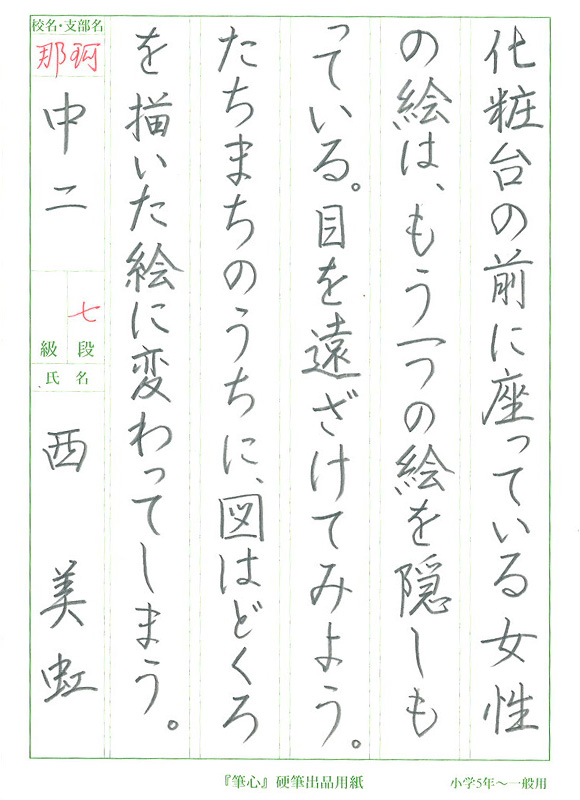 化粧台の前に座っている女性
の絵は、もう一つの絵を隠しも
っている。目を遠ざけてみよう。
たちまちのうちに、図はどくろ
を描いた絵に変わってしまう。
校名・支部名
那珂
中二
七
段
級
氏名
西 美虹
『筆心』硬筆出品用紙
小学5年〜一般用